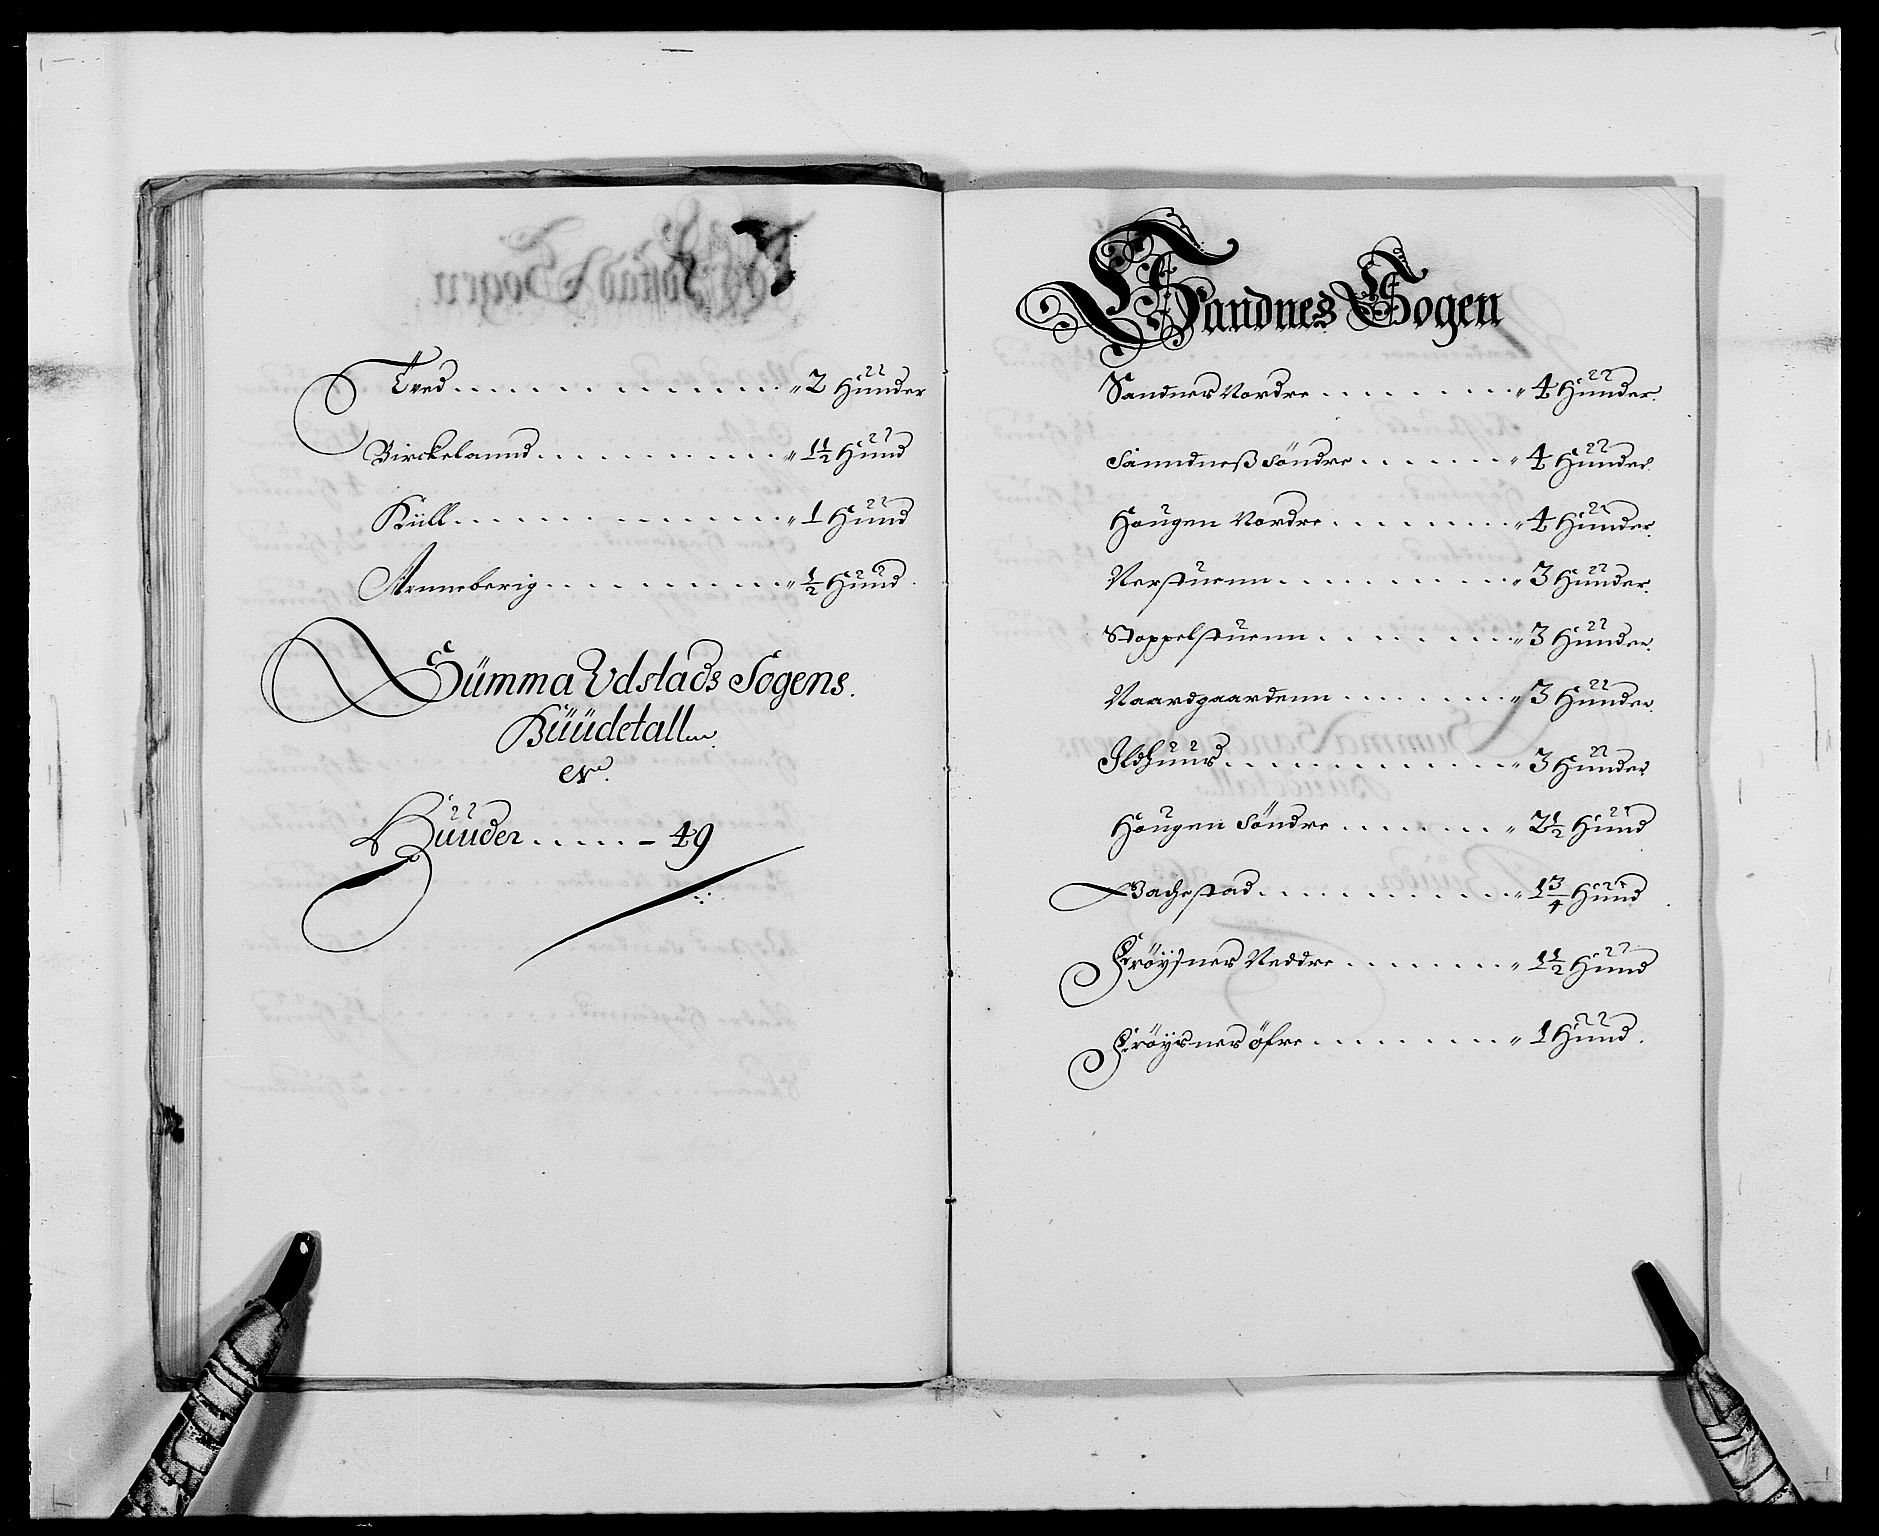 Tved . . . . . . . . . . . . " 2 Huuder
Birckelannd . . . . . . . . . . . " 1½ Huud
Küll . . . . . . . . . . . . " 1 Huud
Aenneberig . . . . . . . . . . " ½ Huud.
Sümma Udstads Sogens.
Hüüdetall
er.
Hüüder . . . . . – 49
Sandnes Sogen
Sandnes Nordre . . . . . . . . " 4 Huuder.
Sanndneß Söndre . . . . . . " 4 Huuder.
Hougen Nordre . . . . . . . . " 4 Huuder.
Verstuenn . . . . . . . . . . . " 3 Huuder.
Stoppelstuenn . . . . . . . . " 3 Huuder.
Naardgaardenn . . . . . . . " 3 Huuder.
Ildhuus . . . . . . . . . . . . " 3 Huuder
Hougen Söndre . . . . . . . " 2½ Huud
Bachestad . . . . . . . . . . . " 1¾ Huud
Fröysnes Neddre . . . . . . . " 1½ Huud
Fröysnes öfre . . . . . . . . . " 1 Huud.